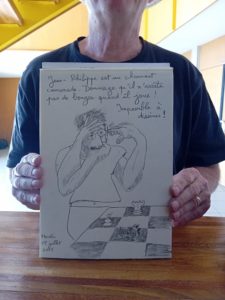 Jean-Philippe est un charmant
camarade. Dommage qu'il n'arrête
pas de bouger quand il joue !
Impossible à
dessiner !
Mardi
juillet